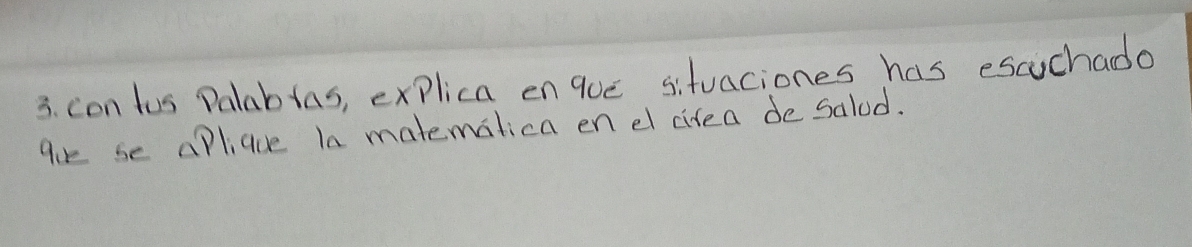 3. con tus Palabras, explica en que situaciones has escuchado
que se aplique la matemática en el área de salud.